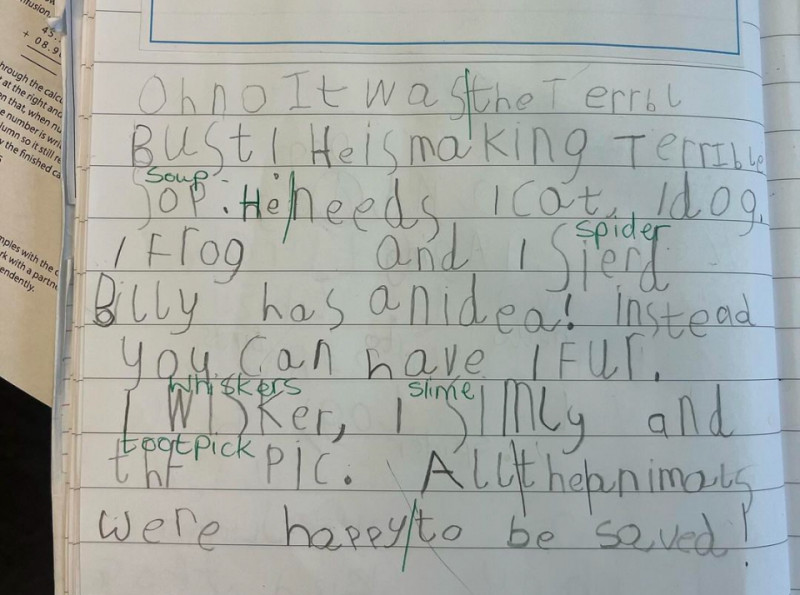 nfusion.
45.
+ 08.9
hrough the calcu
at the right and
n that, when nu
e number is writ
lumn so it still re
y the finished ca
mples with the c
rk with a partne
endently.
Oh no It was the Terribl
BUST! He is making TerrIble
soup
SOP. He needs 1 cat, 1 dog,
spider
1 Frog and 1 Sierd
Billy has an idea! instead
you can have 1 FUr.
whiskers slime
1 WISKer, 1 slimly and
tootpick
tht pic. All the animals
were happy to be saved!